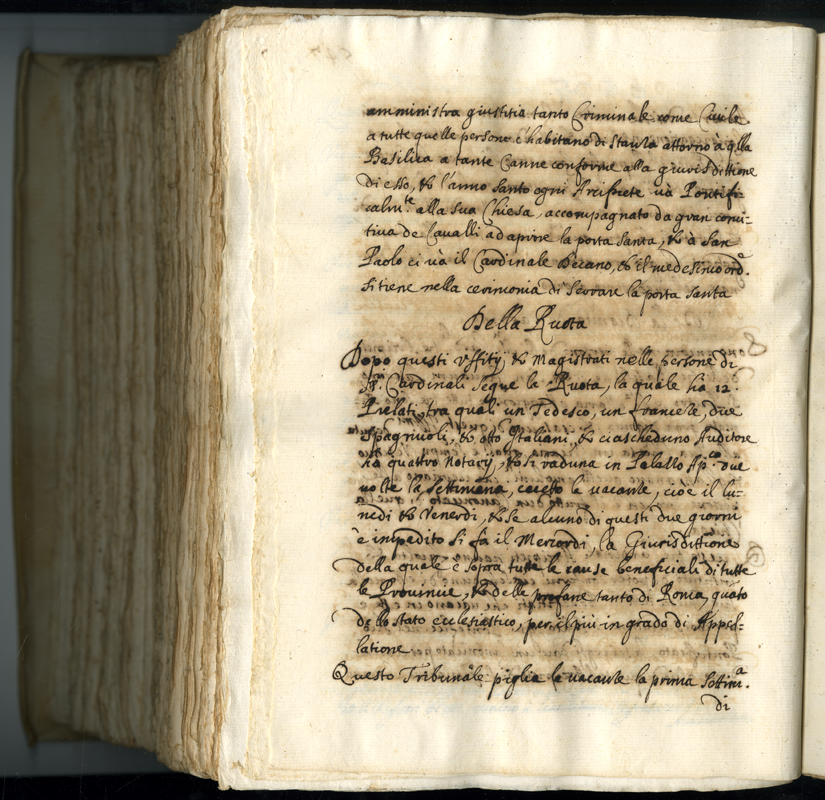 amministra giustitia tanto Criminale come Ciuile
a tutte quelle persone c'habitano di Stanza attorno à qlla
Basilica a tante Canne conforme alla giurisdittione
di esso, & l'anno santo ogni Arciprete uà Pontifi-
calm.te alla sua Chiesa, accompagnato da gran comi-
tiua de Caualli ad aprire la porta santa, & à San
Paolo ci uà il Cardinale Decano, & il medesimo ord.e
si tiene nella cerimonia di serrare la porta santa
Della Ruota
Dopo questi Vffitij & Magistrati nelle persone di
SS.ri Cardinali segue la Ruota, la quale hà 12.
Prelati, tra quali un Tedesco, un franzese, due
Spagnuoli, & otto Italiani, & ciascheduno Auditore
hà quattro Notarij, & si raduna in Palazzo Ap.co due
uolte la settimana, eccetto le uacanze, cioè il lu-
nedì & Venerdì, & se alcuno di questi due giorni
è impedito si fa il Mercordì, la Giurisdittione
della quale è sopra tutte le cause beneficiali di tutte
le Prouincie, & delle profane tanto di Roma, quãto
dello stato ecclesiastico, per il più in grado di Appel-
latione
Questo Tribunale piglia le uacanze la prima Settim.a
di